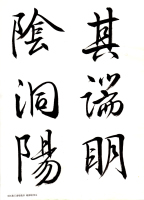 其端明
陰洞陽